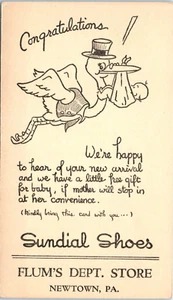 Congratulations
We're happy
to hear of your new arrival
and we have a little free gift
for baby, if mother will stop in
at her convenience.
(Kindly bring this card with you...)
Sundial Shoes
FLUM'S DEPT. STORE
NEWTOWN, PA.